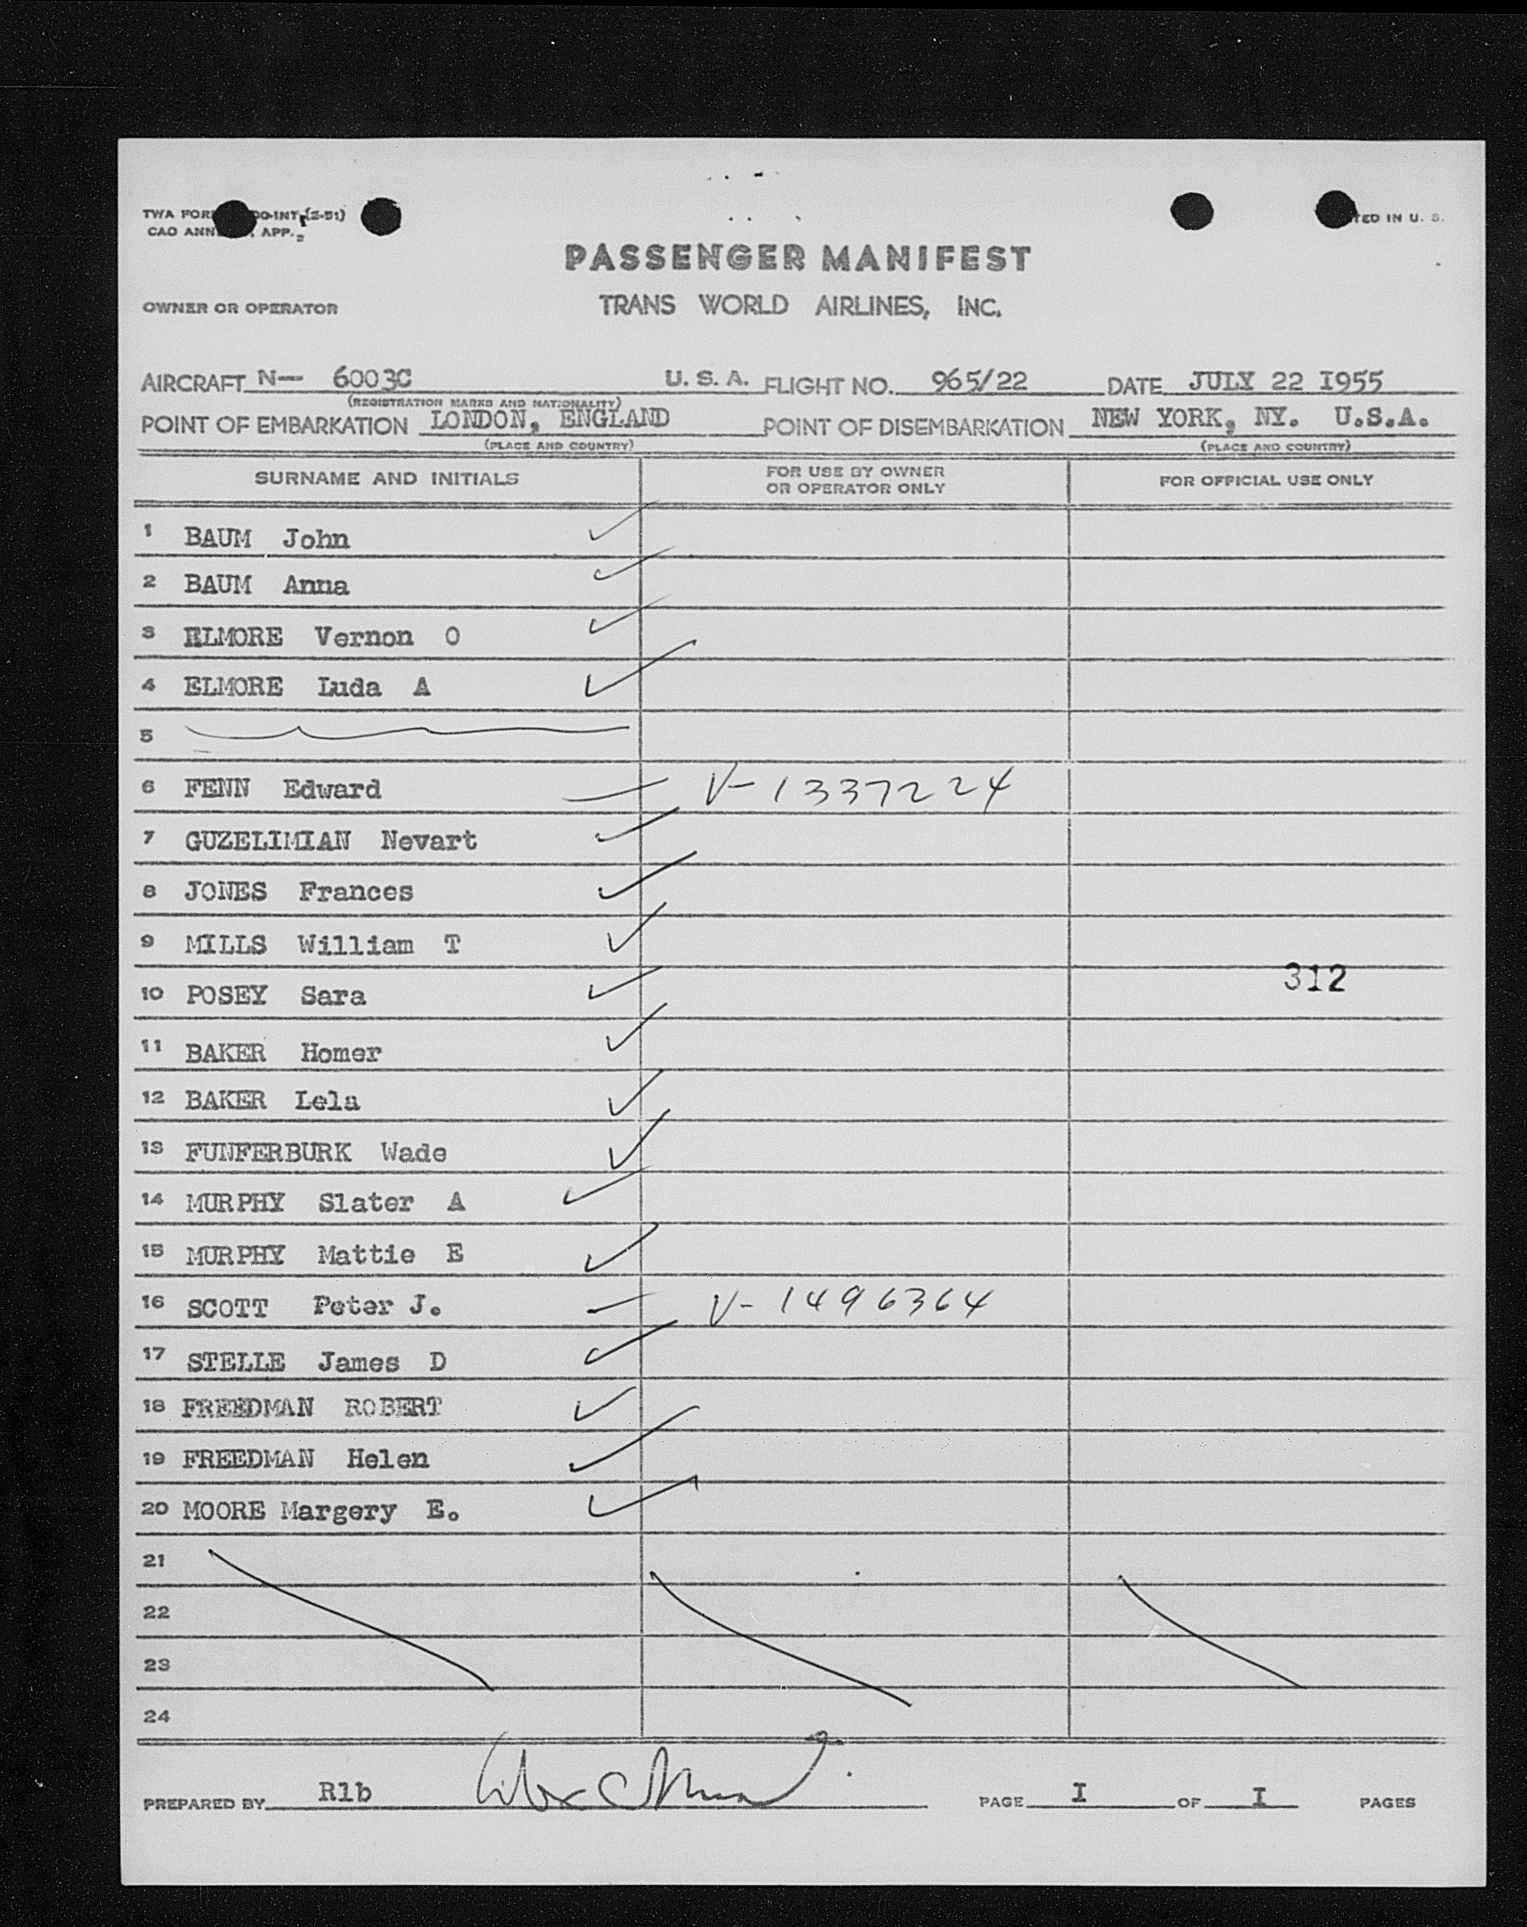 TWA FOR 00-INT (2-51)
CAO ANN . APP.
TED IN U. S.
PASSENGER MANIFEST
OWNER OR OPERATOR TRANS WORLD AIRLINES, INC.
AIRCRAFT N— 6003C U. S. A. FLIGHT NO. 965/22 DATE JULY 22 I955
(REGISTRATION MARKS AND NATIONALITY)
POINT OF EMBARKATION LONDON, ENGLAND POINT OF DISEMBARKATION NEW YORK, NY. U.S.A.
(PLACE AND COUNTRY) (PLACE AND COUNTRY)
SURNAME AND INITIALS FOR USE BY OWNER OR OPERATOR ONLY FOR OFFICIAL USE ONLY
1 BAUM John
2 BAUM Anna
3 ELMORE Vernon O
4 ELMORE Luda A
5
6 FENN Edward V-1337224
7 GUZELIMIAN Nevart
8 JONES Frances
9 MILLS William T
312
10 POSEY Sara
11 BAKER Homer
12 BAKER Lela
13 FUNFERBURK Wade
14 MURPHY Slater A
15 MURPHY Mattie E
16 SCOTT Peter J. V-1496364
17 STELLE James D
18 FREEDMAN ROBERT
19 FREEDMAN Helen
20 MOORE Margery E.
21
22
23
24
PREPARED BY Rlb PAGE I OF I PAGES